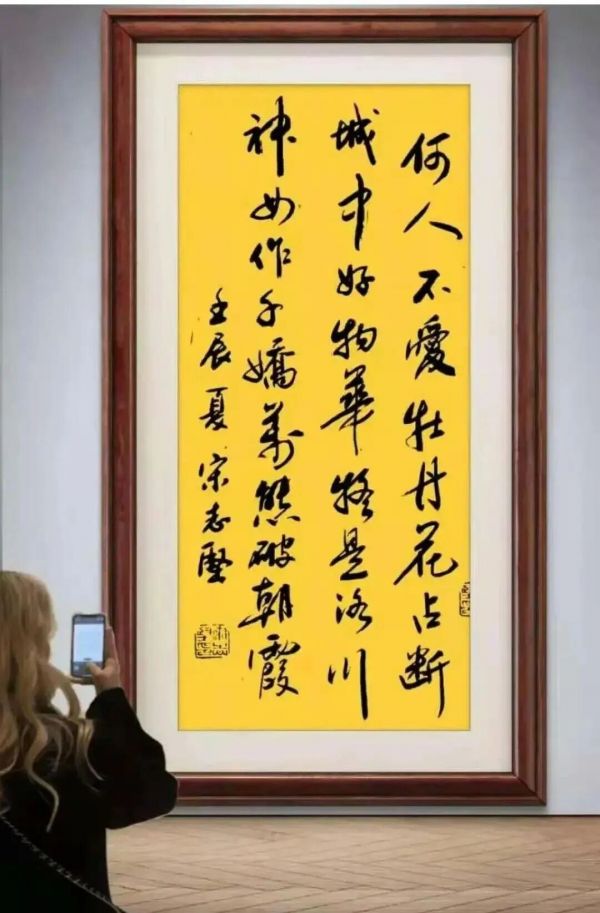 何人不愛牡丹花占斷
城中好物華疑是洛川
神女作千嬌萬態破朝霞
壬辰夏宋志堅